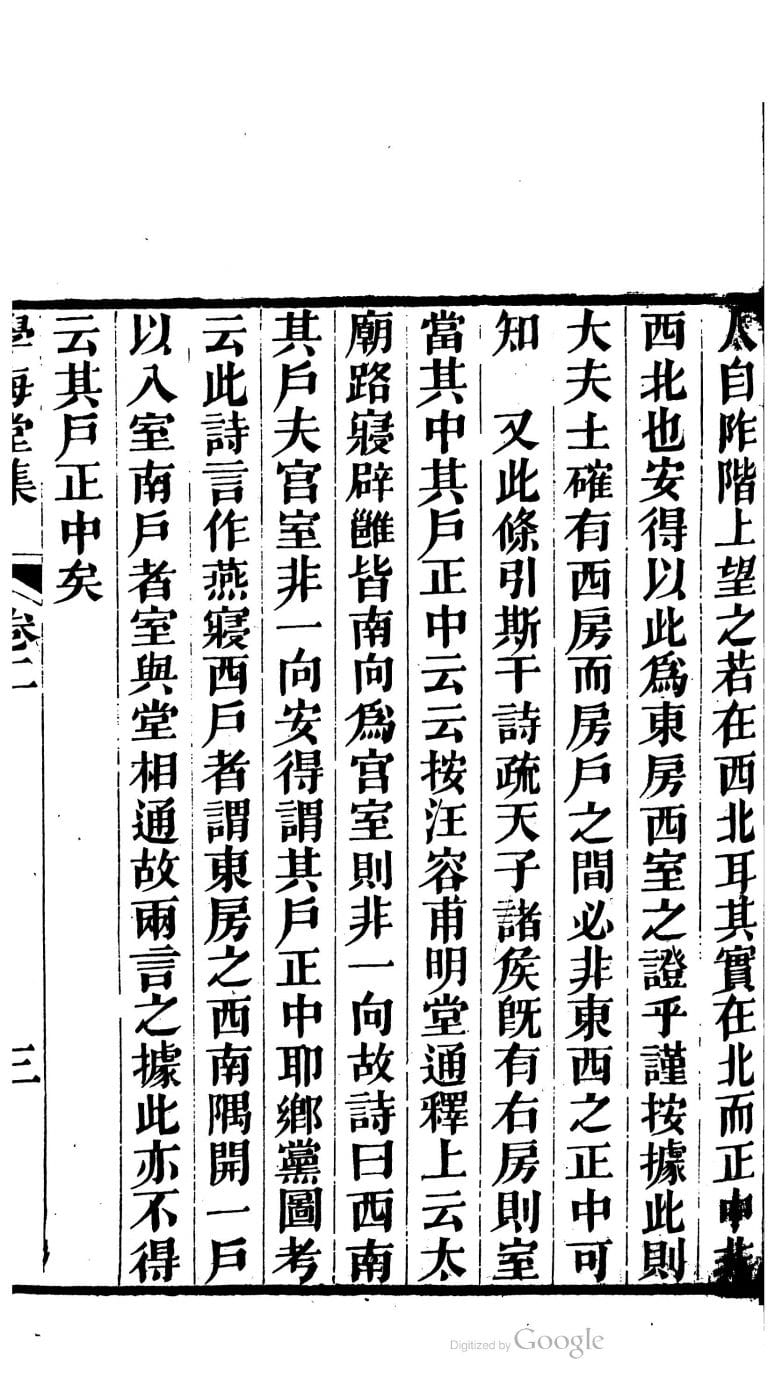 人自阼階上望之若在西北耳其實在北而正中非
西北也安得以此爲東房西室之證乎謹按據此則
大夫士確有西房而房戶之間必非東西之正中可
知　又此條引斯干詩疏天子諸侯旣有右房則室
當其中其戶正中云云按汪容甫明堂通釋上云太
廟路寢辟雝皆南向爲宮室則非一向故詩曰西南
其戶夫宮室非一向安得謂其戶正中耶鄉黨圖考
云此詩言作燕寢西戶者謂東房之西南隅開一戶
以入室南戶者室與堂相通故兩言之據此亦不得
云其戶正中矣
學海堂集　卷二　三
Digitized by Google